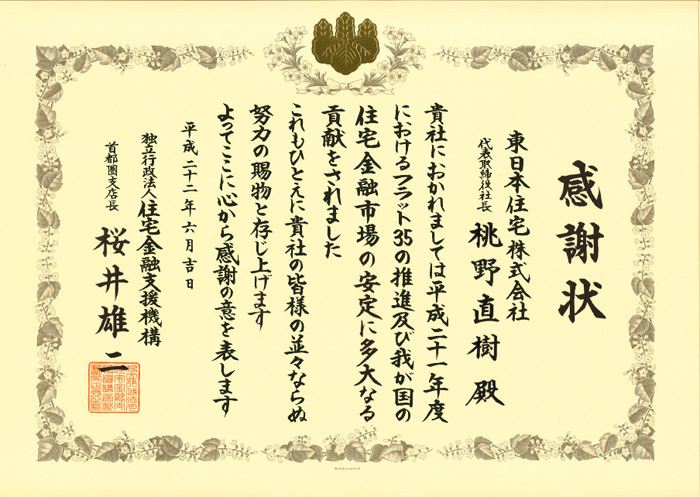 感謝状
東日本住宅株式会社
代表取締役社長 桃野直樹 殿
貴社におかれましては平成二十一年度
におけるフラット35の推進及び我が国の
住宅金融市場の安定に多大なる
貢献をされました
これもひとえに貴社の皆様の並々ならぬ
努力の賜物と存じ上げます
よってここに心から感謝の意を表します
平成二十二年六月吉日
独立行政法人住宅金融支援機構
首都圏支店長 桜井雄二